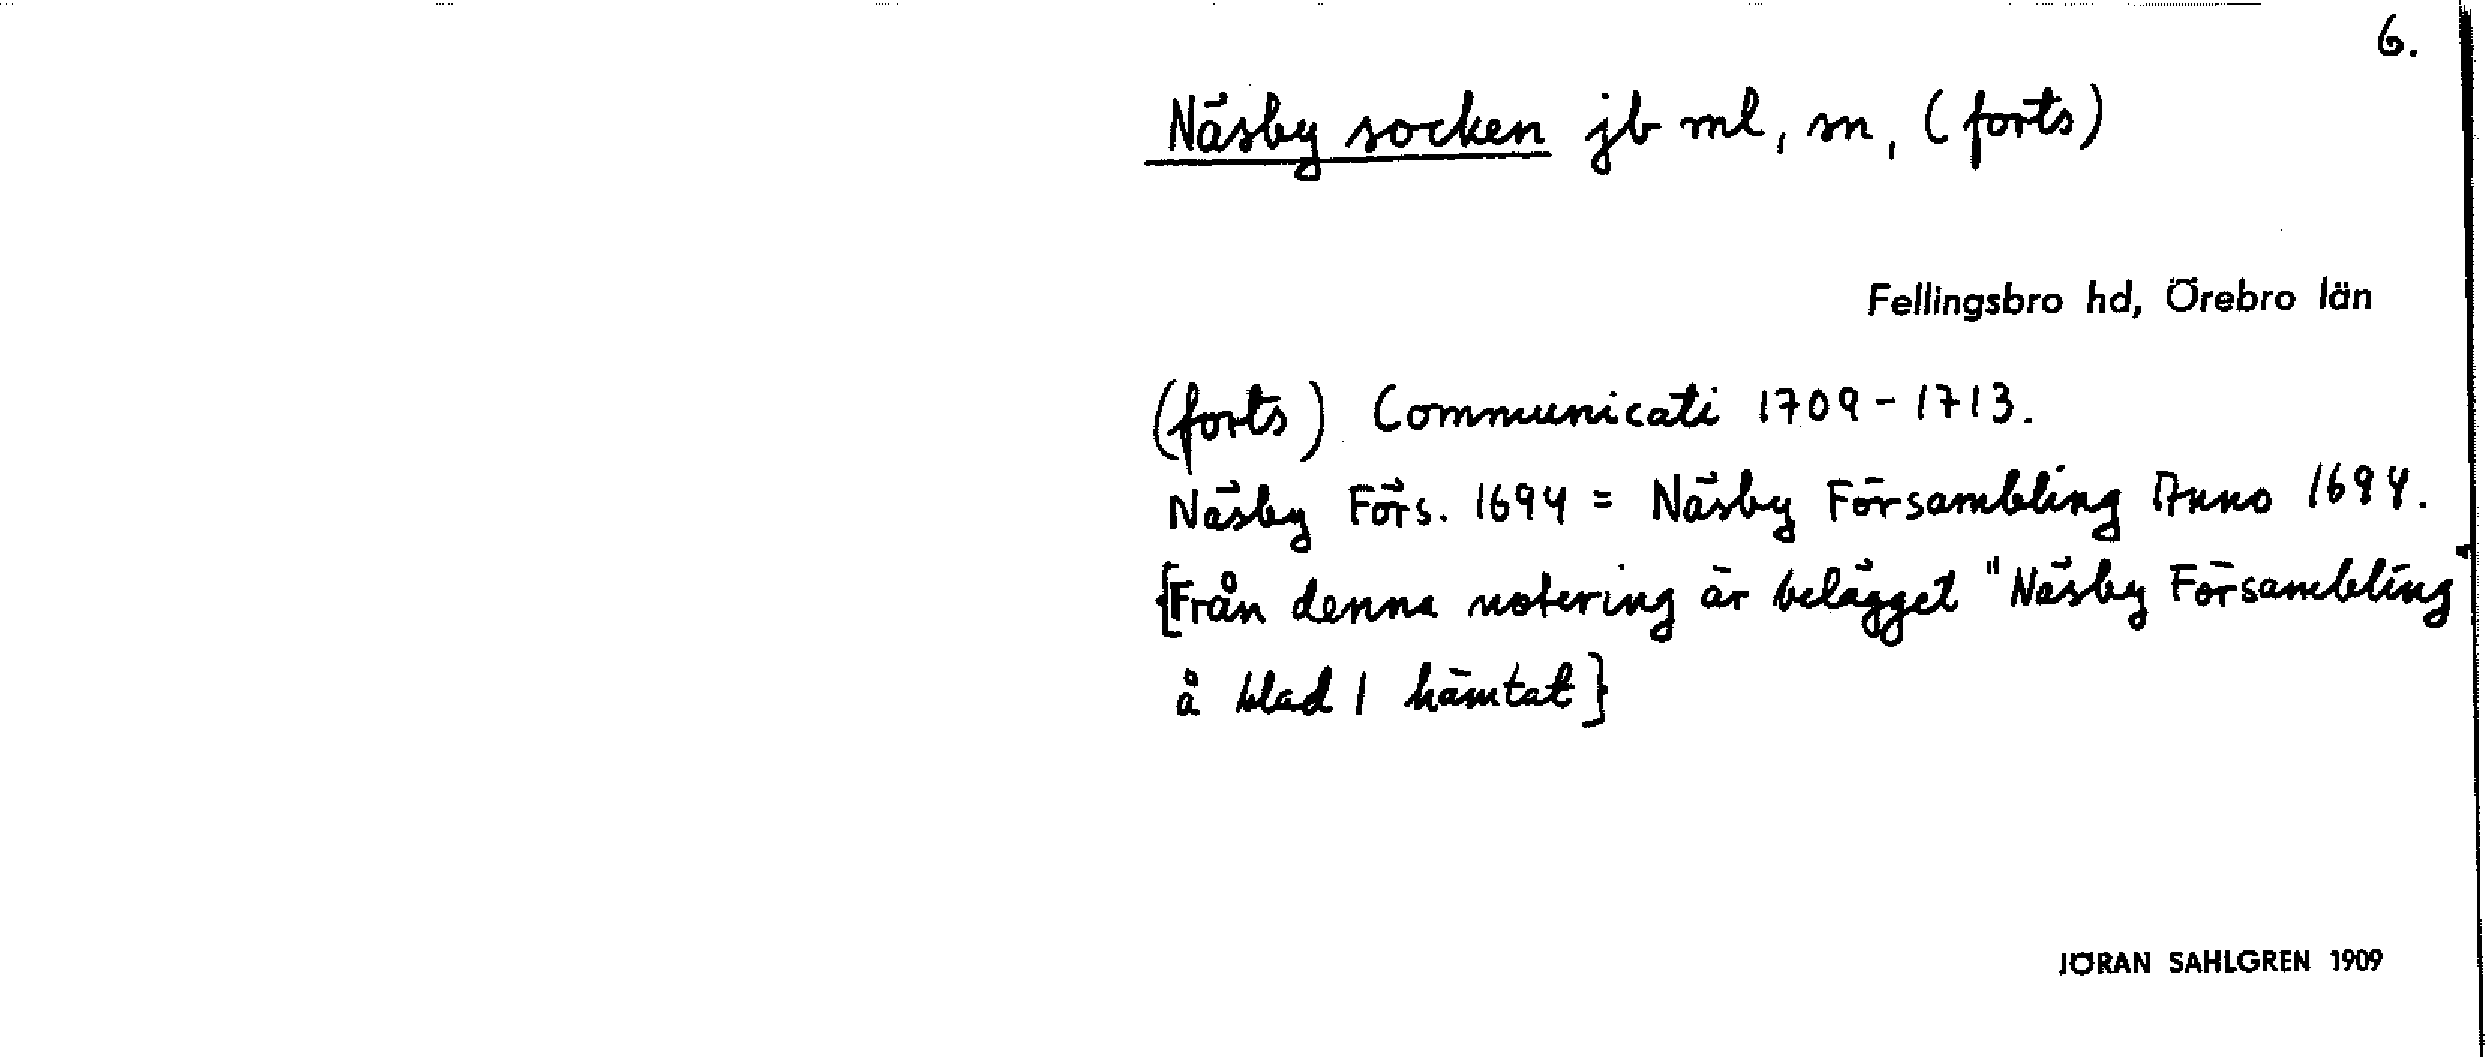 6.
Näsby socken jb ml, sn, (forts)
Fellingsbro hd, Örebro län
(forts) Communicati 1709-1713.
Näsby Förs. 1694 = Näsby Försambling Anno 1694.
[Från denna notering är belägget "Näsby Försambling"
å blad 1 hämtat]
JÖRAN SAHLGREN 1909